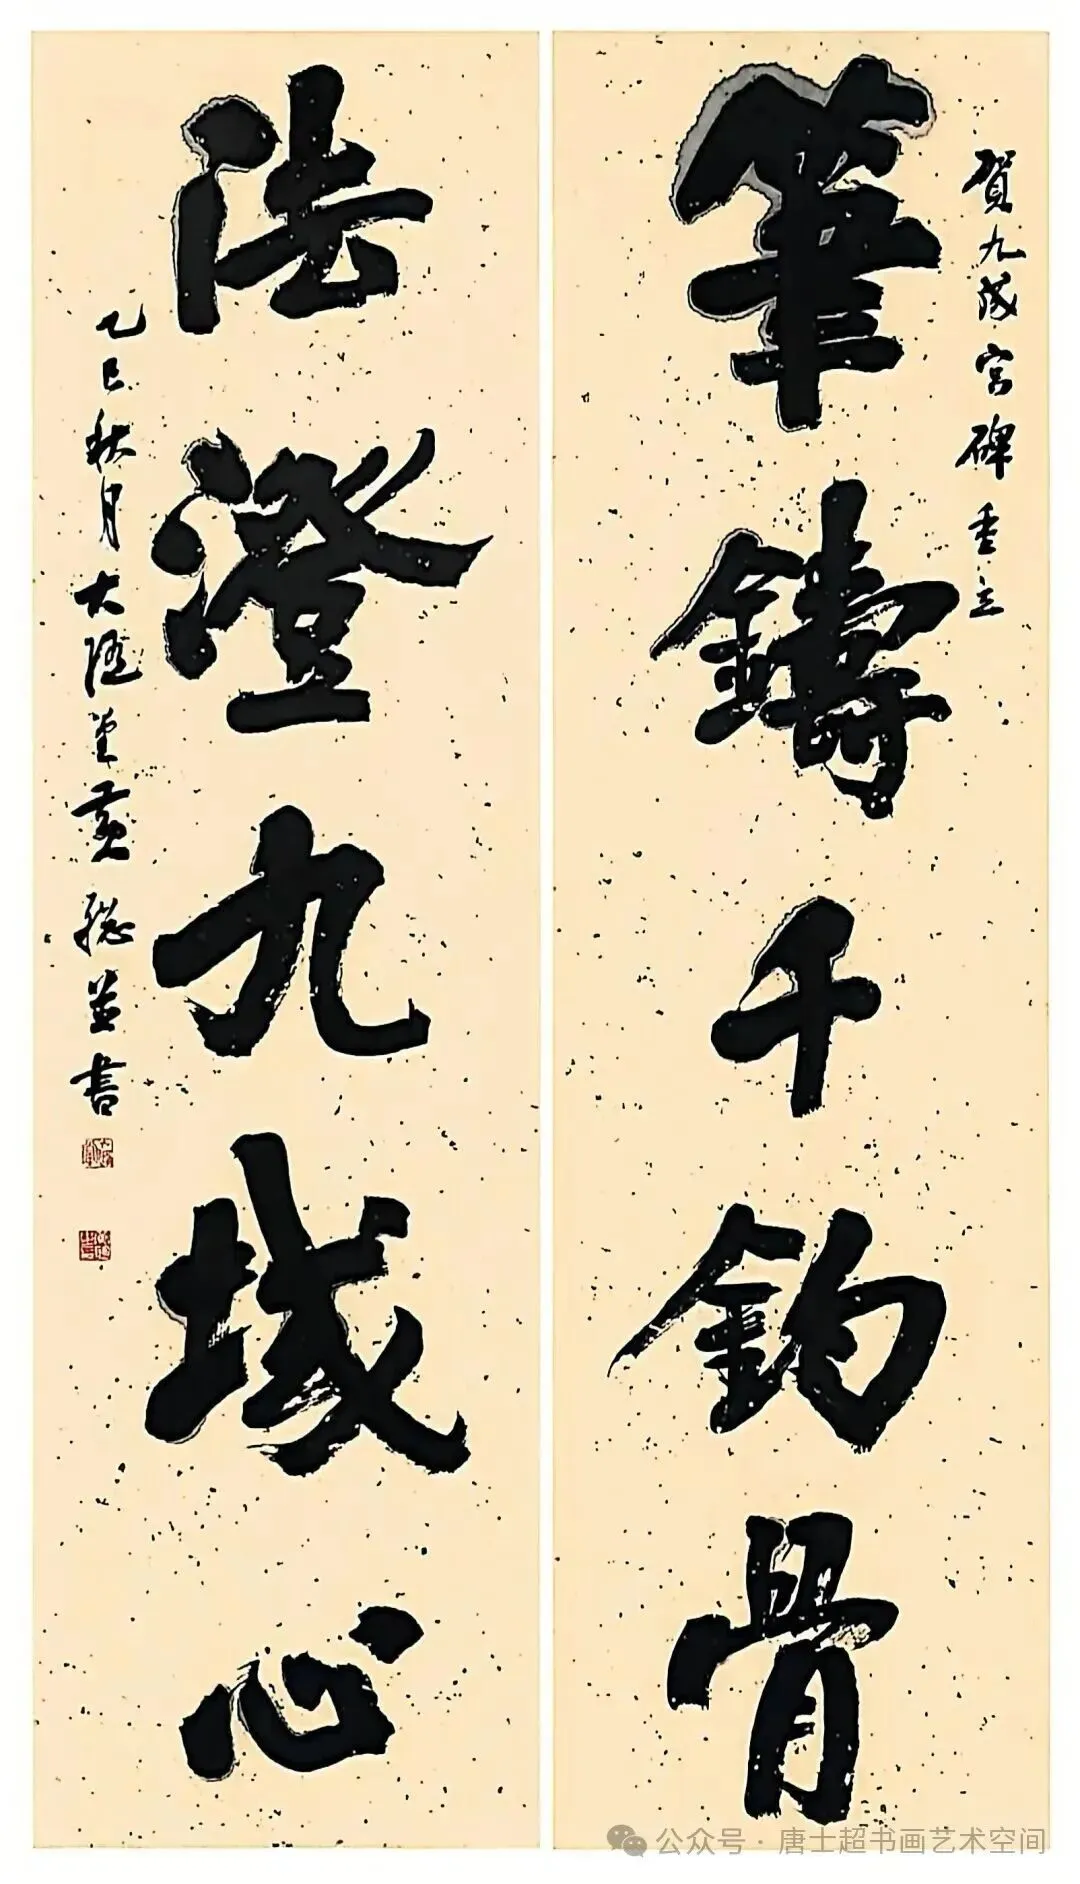 賀九成宮碑重立
筆鑄千鈞骨
法澄九域心
乙巳秋月大隱堂黃聰並書
公众号·唐士超书画艺术空间